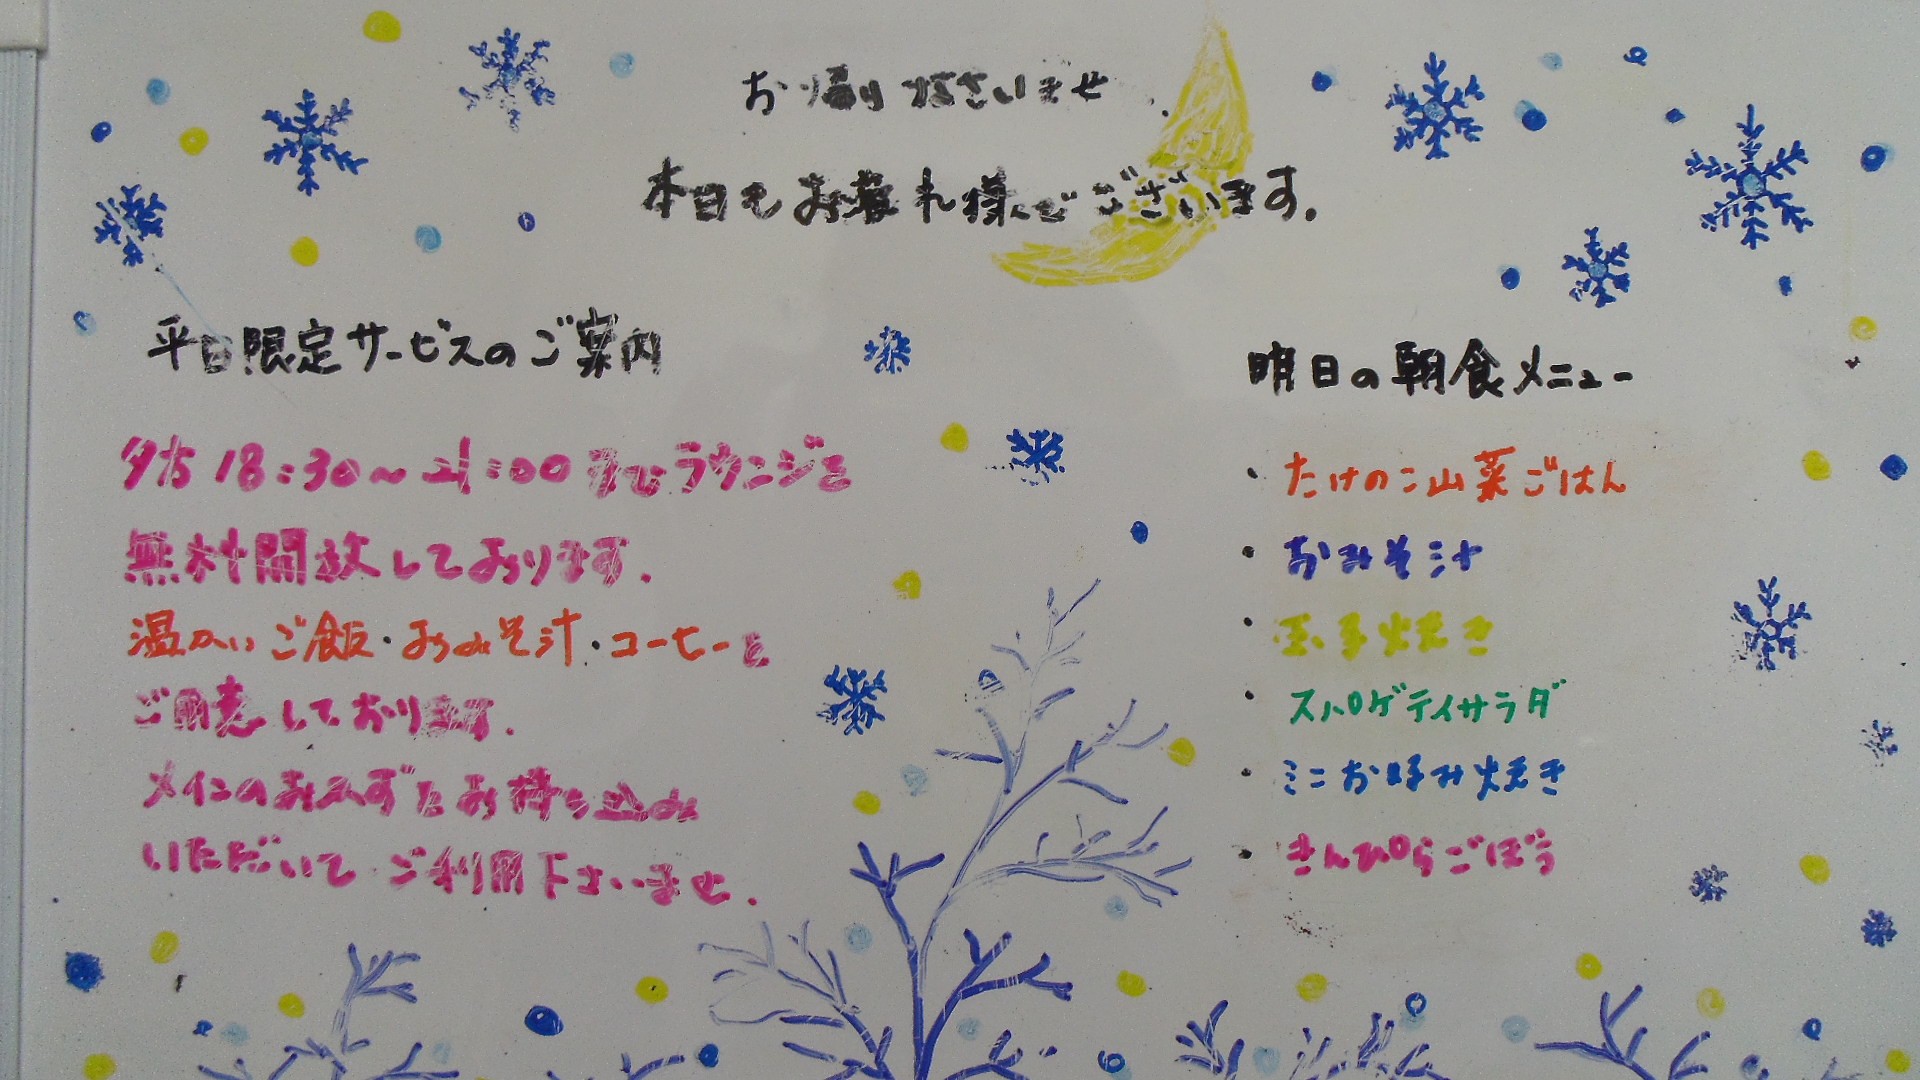 お帰りなさいませ
本日もお疲れ様でございます.
平日限定サービスのご案内
夕方 18:30～21:00 ラウンジを
無料開放しております.
温かいご飯・おみそ汁・コーヒーを
ご用意しております.
メインのおかずをお持ち込み
いただいて ご利用下さいませ.
明日の朝食メニュー
・たけのこ山菜ごはん
・おみそ汁
・玉子焼き
・スパゲティサラダ
・ミニお好み焼き
・きんぴらごぼう